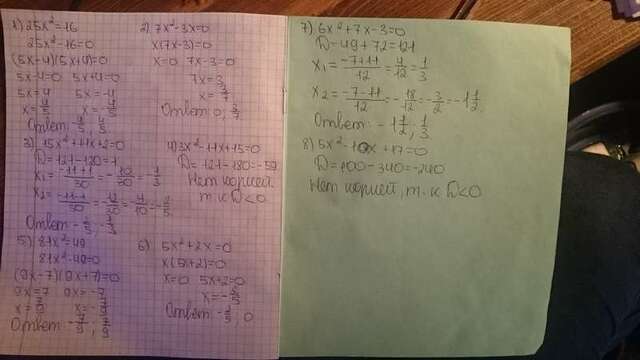 1) 25x²=16
25x²-16=0
(5x-4)(5x+4)=0
5x-4=0 5x+4=0
5x=4 5x=-4
x=4/5 x=-4/5
Ответ 4/5; -4/5
2) 7x²-3x=0
x(7x-3)=0
x=0 7x-3=0
7x=3
x=3/7
Ответ 0; 3/7
3) 15x²+11x+2=0
D=121-120=1
x₁=(-11+1)/30=-10/30=-1/3
Ответ
4) 3x²+11x+15=0
D=121-180=-59
Нет корней
т.к D<0
5) 81x²=49
81x²-49=0
(9x-7)(9x+7)=0
9x=7 9x=-7
x=7/9 x=-7/9
Ответ -7/9; 7/9
6) 5x²+2x=0
x(5x+2)=0
x=0 5x+2=0
x=-2/5
Ответ -2/5; 0
7) 6x²+7x-3=0
D=49+72=121
x₁=(-7+11)/12=4/12=1/3
x₂=(-7-11)/12=-18/12=-3/2=-1 1/2
Ответ -1 1/2; 1/3
8) 5x²-10x+17=0
D=100-340=-240
Нет корней, т.к D<0